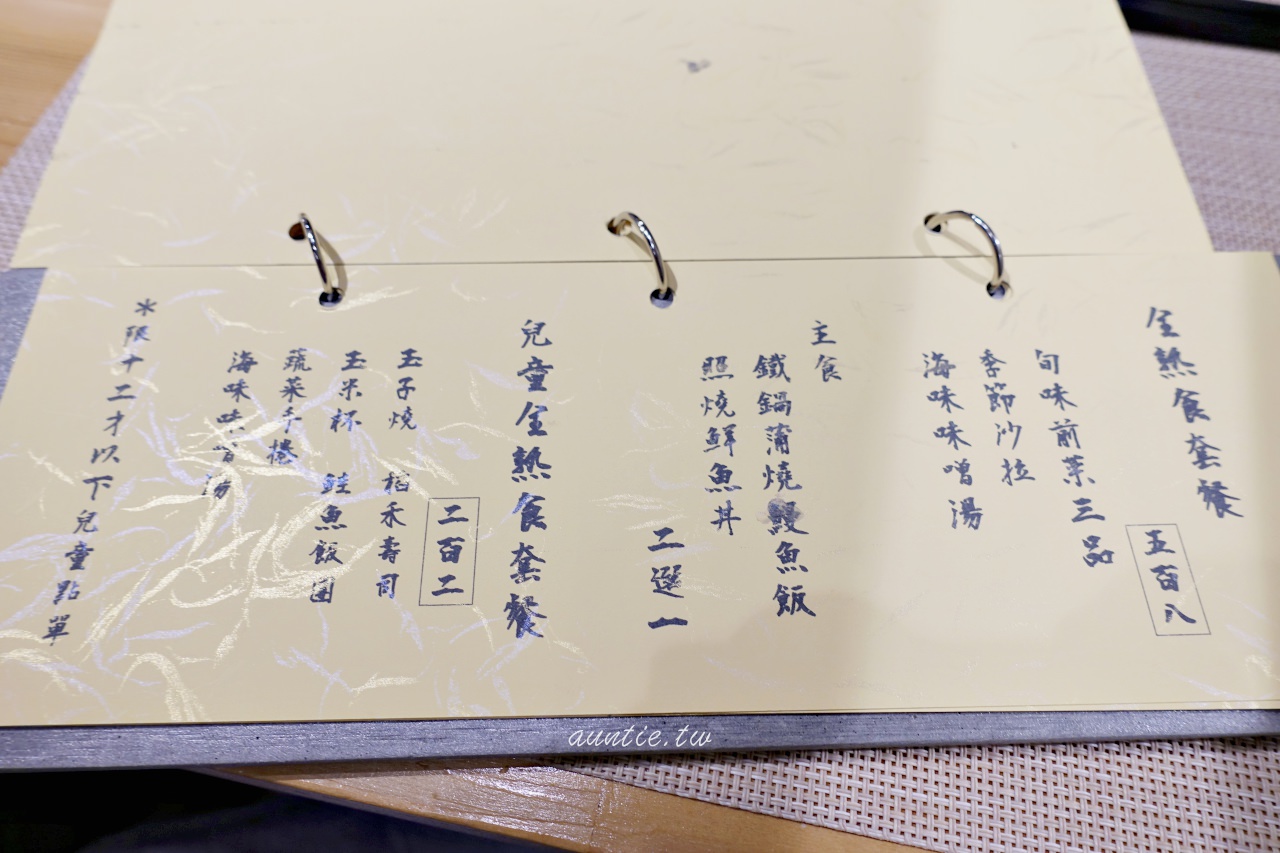 全熟食套餐
五百八
旬味前菜三品
季節沙拉
海味味噌湯
主食
鐵鍋蒲燒鰻魚飯
照燒鮮魚丼
二選一
兒童全熟食套餐
二百二
玉子燒 稻禾壽司
玉米杯 鮭魚飯團
蔬菜手捲
海味味噌湯
*限十二才以下兒童點單
auntie.tw